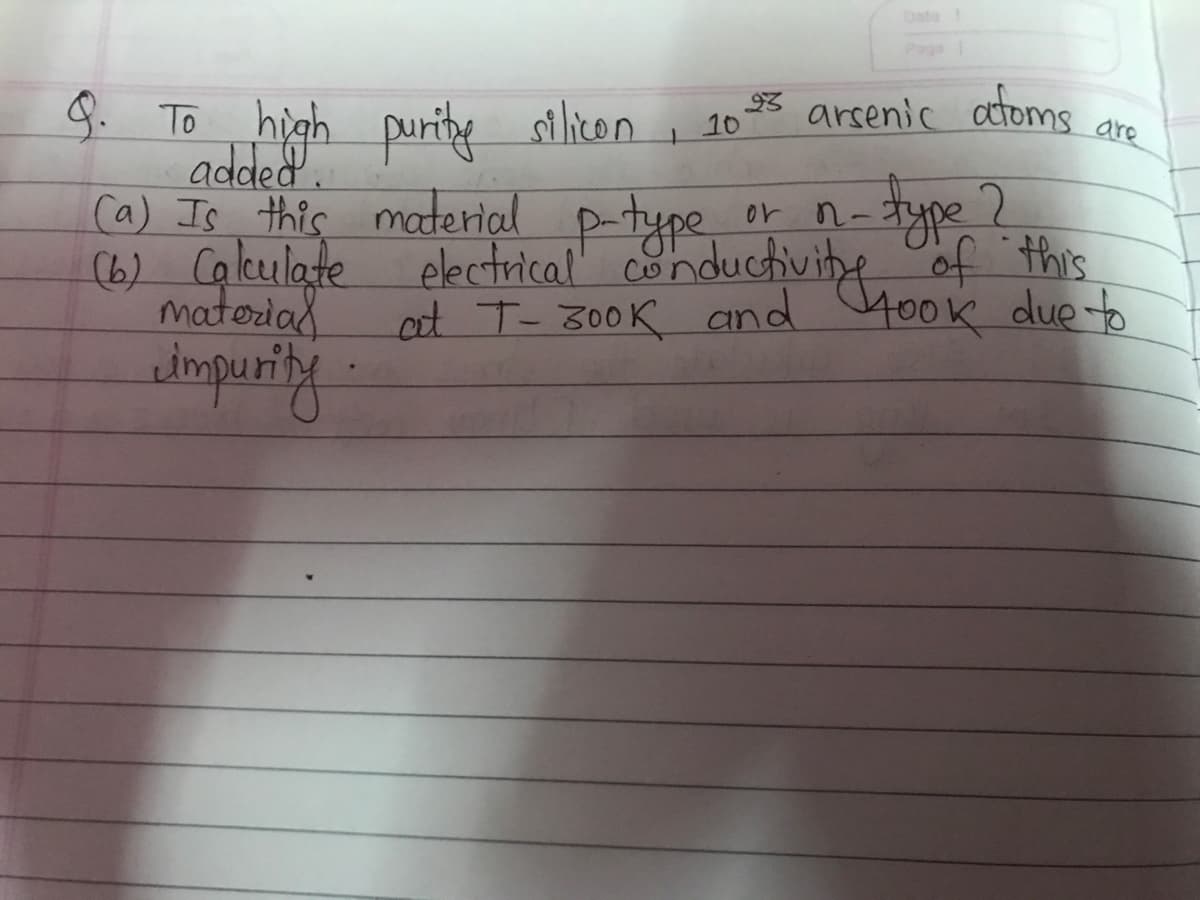 Date
Page
Q. To high purity silicon, 10²³ arsenic atoms are
added.
(a) Is this material p-type or n-type?
(b) Calculate electrical conductivity of this
material at T- 300K and 400K due to
impurity.